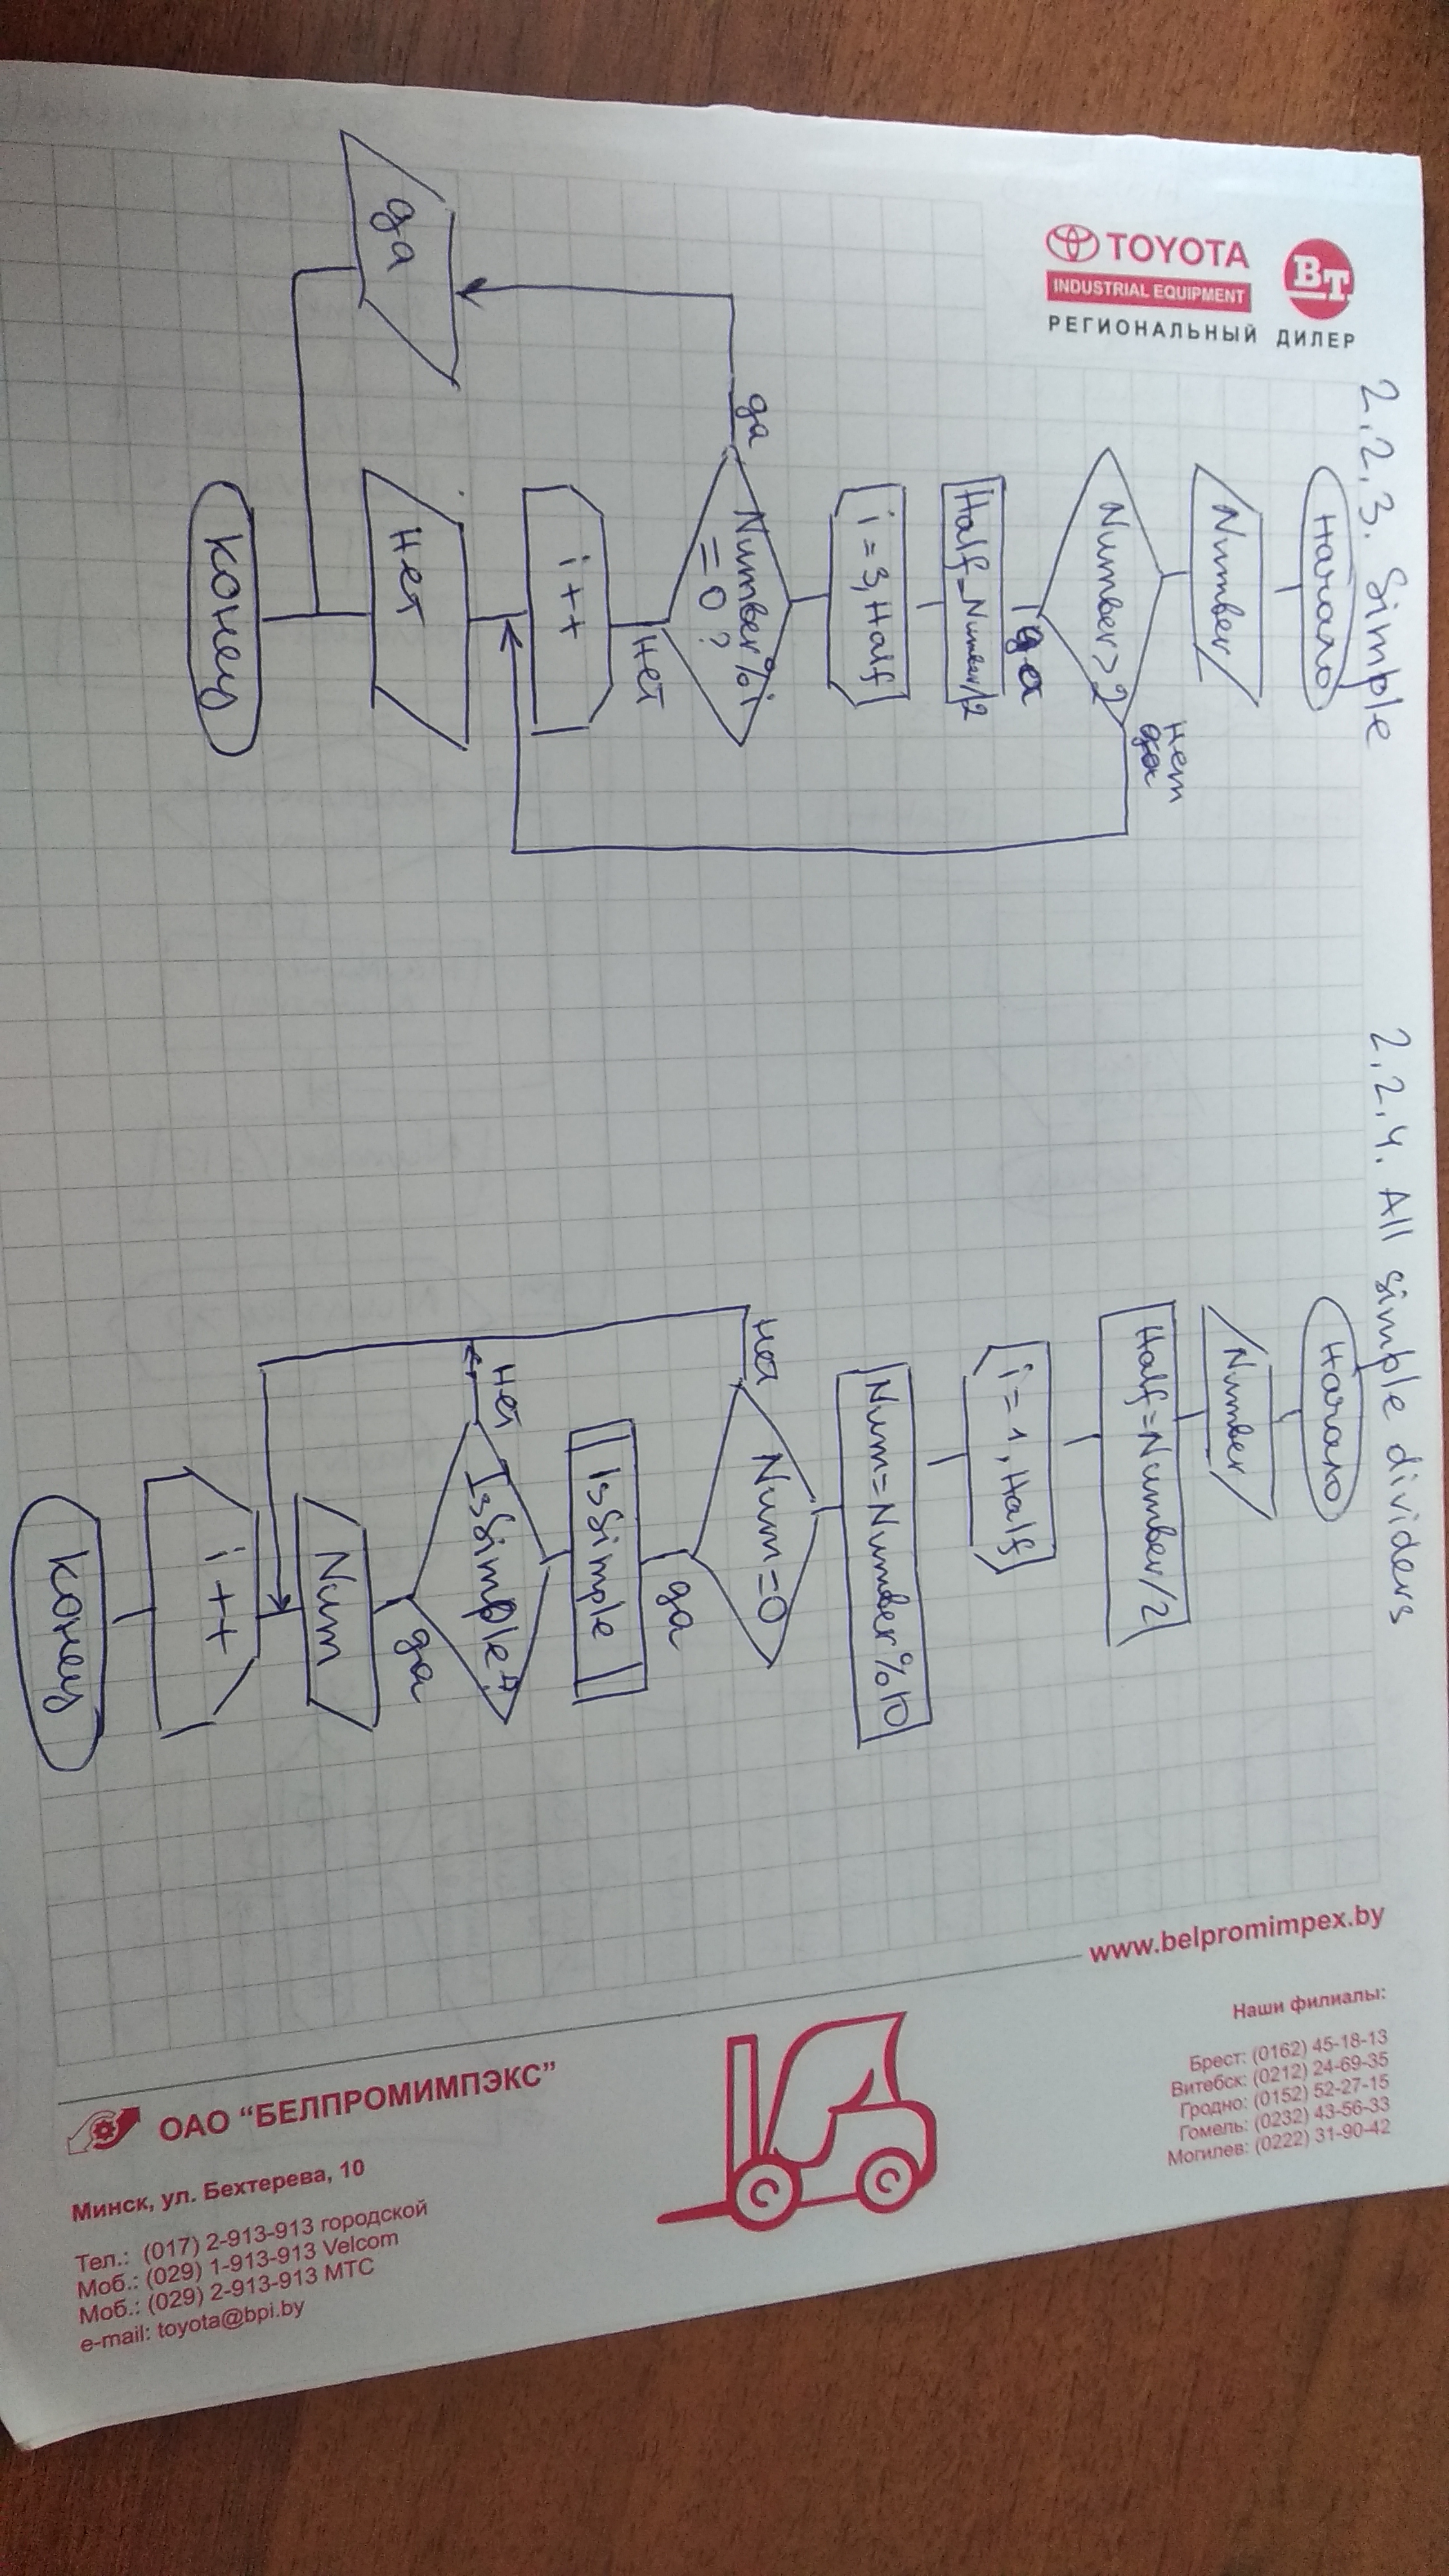 TOYOTA
INDUSTRIAL EQUIPMENT
BT
РЕГИОНАЛЬНЫЙ ДИЛЕР
2.2.3. Simple
Начало
Number
Number>2
нет
да
Half=Number/2
i=3, Half
Number%i
=0?
да
нет
i++
да
Нет
Конец
2.2.4. All simple dividers
Начало
Number
Half=Number/2
i=1, Half
Num=Number%10
Num=0
нет
да
IsSimple
нет
да
Num
i++
Конец
www.belpromimpex.by
Наши филиалы:
Брест: (0162) 45-18-13
Витебск: (0212) 24-69-35
Гродно: (0152) 52-27-15
Гомель: (0232) 43-56-33
Могилев: (0222) 31-90-42
ОАО “БЕЛПРОМИМПЭКС”
Минск, ул. Бехтерева, 10
Тел.: (017) 2-913-913 городской
Моб.: (029) 1-913-913 Velcom
Моб.: (029) 2-913-913 МТС
e-mail: toyota@bpi.by